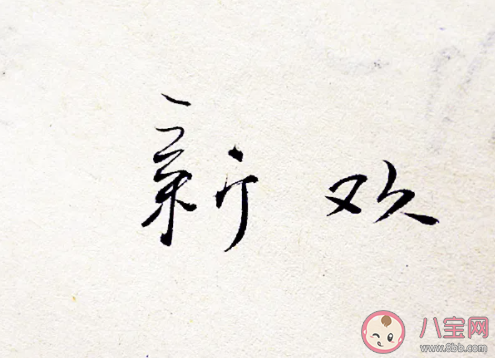 新欢
八宝网
www.8bb.com